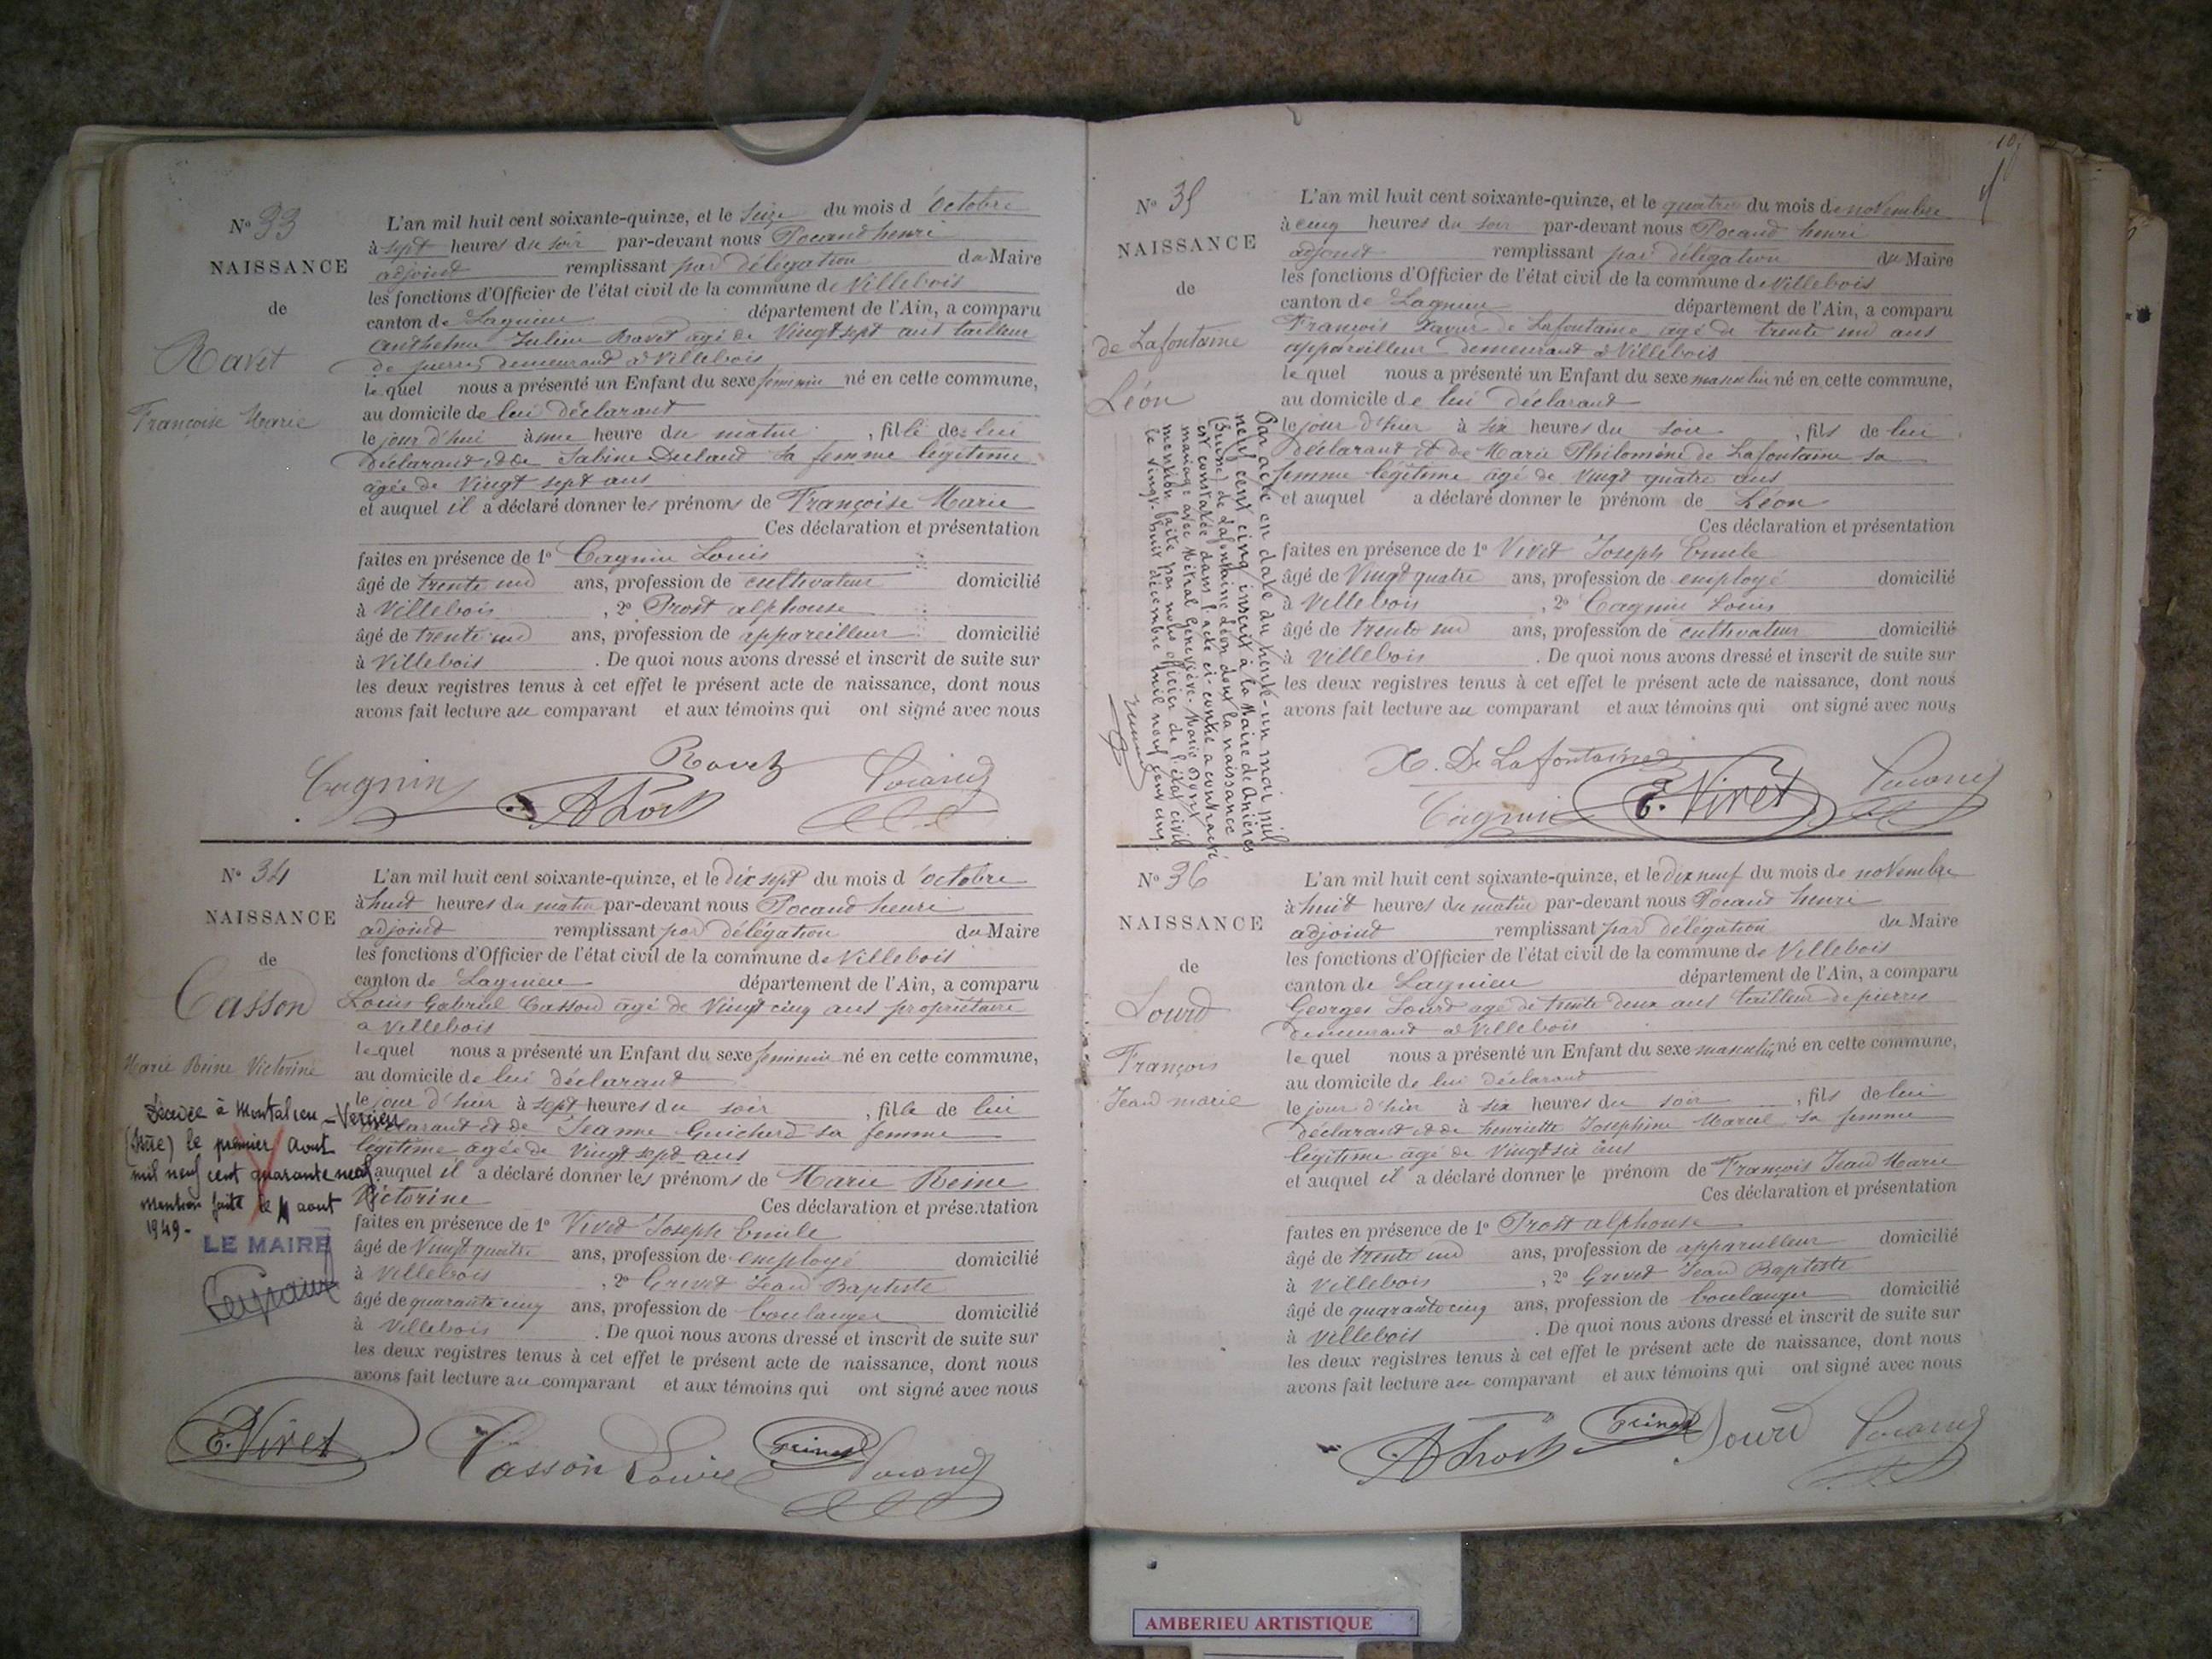 N° 33
NAISSANCE
de
Ravet
Françoise Marie
L'an mil huit cent soixante-quinze, et le seize du mois d'octobre
à sept heures du soir par-devant nous Pocand henri
adjoint remplissant par délégation du Maire
les fonctions d'Officier de l'état civil de la commune de Villebois
canton de Lagnieu département de l'Ain, a comparu
Anthelme Julien Ravet âgé de Vingt sept ans tailleur
de pierres demeurant à Villebois
lequel nous a présenté un Enfant du sexe feminin né en cette commune,
au domicile de lui déclarant
le jour d'hui à une heure du matin, fille de lui
déclarant et de Sabine sa femme légitime
âgée de Vingt sept ans
et auquel il a déclaré donner les prénoms de Françoise Marie
Ces déclaration et présentation
faites en présence de 1° Cagnin Louis
âgé de trente un ans, profession de cultivateur domicilié
à Villebois, 2° Prost alphonse
âgé de trente un ans, profession de appareilleur domicilié
à Villebois. De quoi nous avons dressé et inscrit de suite sur
les deux registres tenus à cet effet le présent acte de naissance, dont nous
avons fait lecture au comparant et aux témoins qui ont signé avec nous
Ravet
Cagnin A Prost Pocand
N° 34
NAISSANCE
de
Casson
Marie Reine Victorine
Décédée à Montalieu-Vercieu
(Isère) le premier Aout
mil neuf cent quarante neuf.
Mention faite le 4 aout
1949-
LE MAIRE
L'an mil huit cent soixante-quinze, et le dix sept du mois d'octobre
à huit heures du matin par-devant nous Pocand henri
adjoint remplissant par délégation du Maire
les fonctions d'Officier de l'état civil de la commune de Villebois
canton de Lagnieu département de l'Ain, a comparu
Louis Gabriel Casson âgé de Vingt cinq ans propriétaire
à Villebois
lequel nous a présenté un Enfant du sexe feminin né en cette commune,
au domicile de lui déclarant
le jour d'hier à sept heures du soir, fille de lui
déclarant et de Jeanne Guicherd sa femme
légitime âgée de Vingt sept ans
et auquel il a déclaré donner les prénoms de Marie Reine
Victorine Ces déclaration et présentation
faites en présence de 1° Viret Joseph Emile
âgé de Vingt quatre ans, profession de employé domicilié
à Villebois, 2° Jean Baptiste
âgé de quarante cinq ans, profession de boulanger domicilié
à Villebois. De quoi nous avons dressé et inscrit de suite sur
les deux registres tenus à cet effet le présent acte de naissance, dont nous
avons fait lecture au comparant et aux témoins qui ont signé avec nous
E. Viret Casson Louis Pocand
N° 35
NAISSANCE
de
de Lafontaine
Léon
Par acte en date du trente-un mai mil
neuf cent cinq inscrit à la Mairie de Anières
(Suisse) de Lafontaine Léon dont la naissance
est constatée dans l'acte ci-contre a contracté
mariage avec Métral Geneviève-Marie dont
mention faite par nous officier de l'état civil
le vingt-huit décembre mil neuf cent cinq.
L'an mil huit cent soixante-quinze, et le quatre du mois de novembre
à cinq heures du soir par-devant nous Pocand henri
adjoint remplissant par délégation du Maire
les fonctions d'Officier de l'état civil de la commune de Villebois
canton de Lagnieu département de l'Ain, a comparu
François Xavier de Lafontaine agé de trente un ans
appareilleur demeurant à Villebois
lequel nous a présenté un Enfant du sexe masculin né en cette commune,
au domicile de lui déclarant
le jour d'hier à six heures du soir, fils de lui
déclarant et de Marie Philomène de Lafontaine sa
femme légitime âgé de vingt quatre ans
et auquel a déclaré donner le prénom de Léon
Ces déclaration et présentation
faites en présence de 1° Viret Joseph Emile
âgé de Vingt quatre ans, profession de employé domicilié
à Villebois, 2° Cagnin Louis
âgé de trente un ans, profession de cultivateur domicilié
à Villebois. De quoi nous avons dressé et inscrit de suite sur
les deux registres tenus à cet effet le présent acte de naissance, dont nous
avons fait lecture au comparant et aux témoins qui ont signé avec nous
X. De Lafontaine
Cagnin E. Viret Pocand
N° 36
NAISSANCE
de
Lourd
François
Jean marie
L'an mil huit cent soixante-quinze, et le dix neuf du mois de novembre
à huit heures du matin par-devant nous Pocand henri
adjoint remplissant par délégation du Maire
les fonctions d'Officier de l'état civil de la commune de Villebois
canton de Lagnieu département de l'Ain, a comparu
Georges Lourd agé de trente deux ans tailleur de pierres
demeurant à Villebois
lequel nous a présenté un Enfant du sexe masculin né en cette commune,
au domicile de lui déclarant
le jour d'hier à six heures du soir, fils de lui
déclarant et de henriette Josephine Marcel sa femme
légitime âgé de Vingt six ans
et auquel il a déclaré donner le prénom de François Jean Marie
Ces déclaration et présentation
faites en présence de 1° Prost alphonse
âgé de trente un ans, profession de appareilleur domicilié
à Villebois, 2° Jean Baptiste
âgé de quarante cinq ans, profession de boulanger domicilié
à Villebois. De quoi nous avons dressé et inscrit de suite sur
les deux registres tenus à cet effet le présent acte de naissance, dont nous
avons fait lecture au comparant et aux témoins qui ont signé avec nous
A Prost Lourd Pocand
AMBERIEU ARTISTIQUE